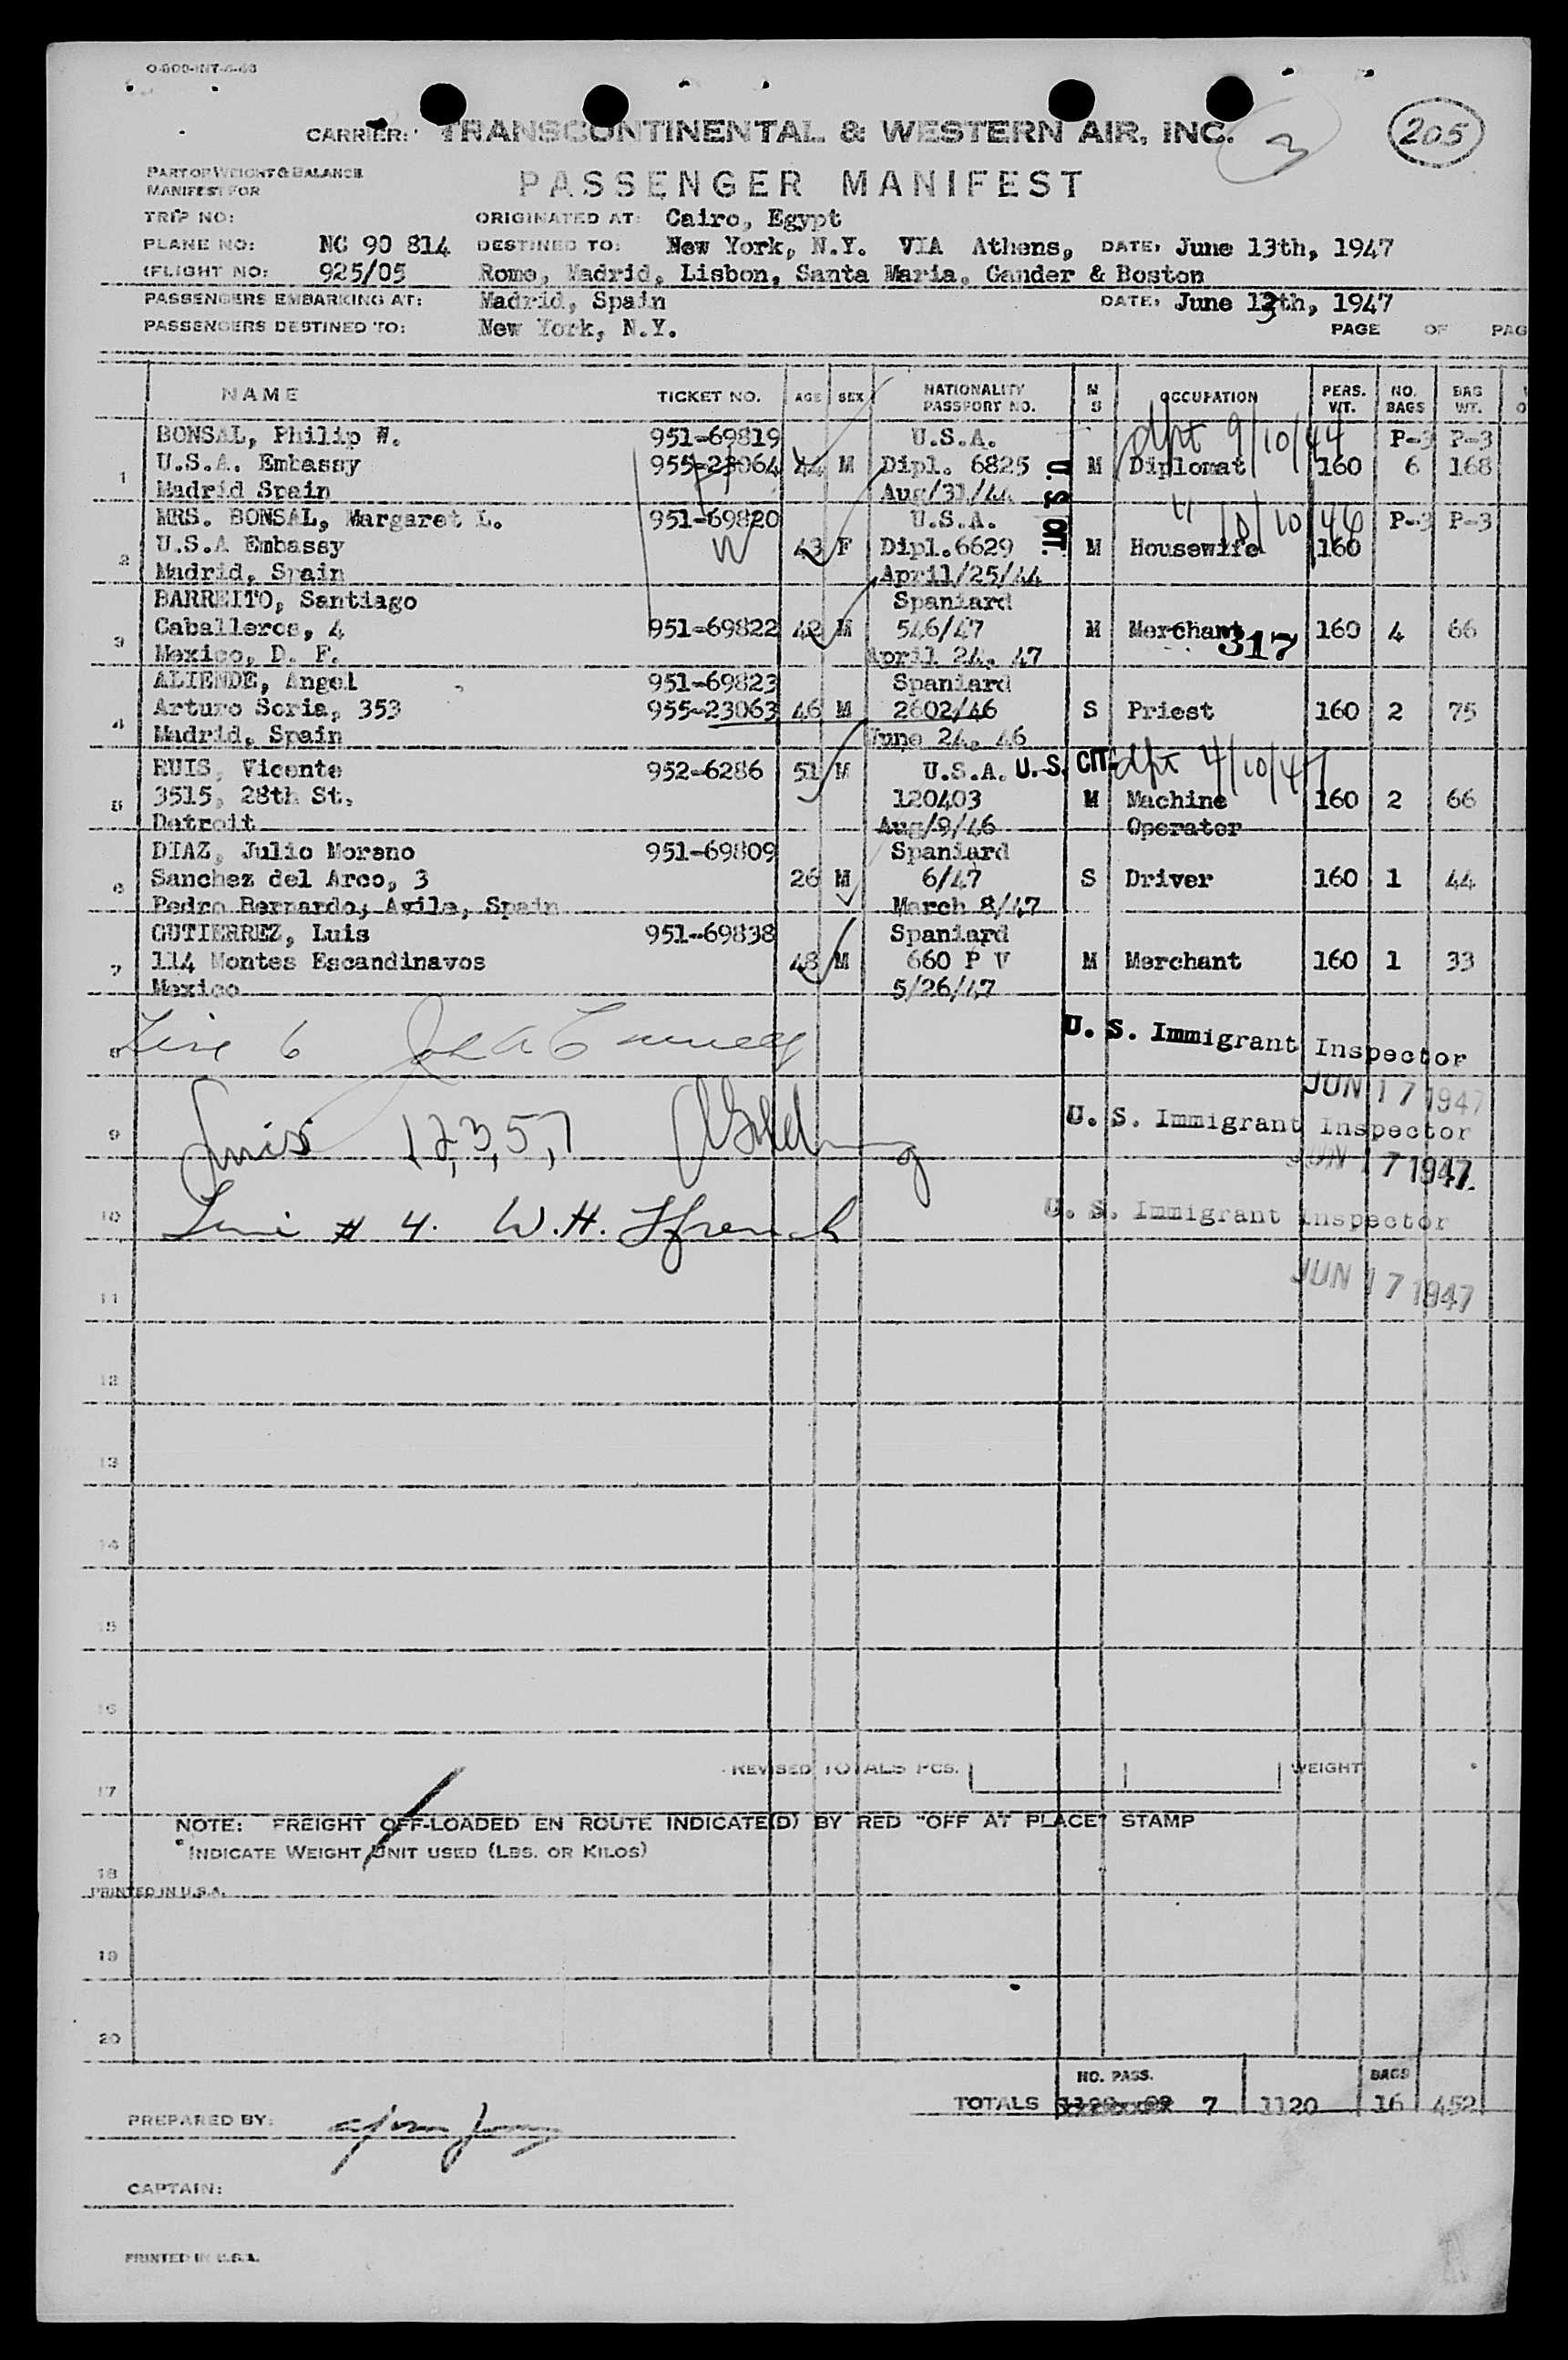 O-800-INT-4-46
CARRIER: TRANSCONTINENTAL & WESTERN AIR, INC.
3
205
PART OF WEIGHT & BALANCE
MANIFEST FOR
PASSENGER MANIFEST
TRIP NO: ORIGINATED AT: Cairo, Egypt
PLANE NO: NC 90 814 DESTINED TO: New York, N.Y. VIA Athens, DATE: June 13th, 1947
(FLIGHT NO: 925/05 Rome, Madrid, Lisbon, Santa Maria, Gander & Boston
PASSENGERS EMBARKING AT: Madrid, Spain DATE: June 13th, 1947
PASSENGERS DESTINED TO: New York, N.Y. PAGE OF PAG
NAME TICKET NO. AGE SEX NATIONALITY PASSPORT NO. M S OCCUPATION PERS. WT. NO. BAGS BAG WT.
BONSAL, Philip W. 951-69819 U.S.A. dpt 9/10/44 P-3 P-3
1 U.S.A. Embassy 955-23064 44 M Dipl. 6825 M Diplomat 160 6 168
Madrid Spain Aug/31/44
U. S. CIT.
MRS. BONSAL, Margaret L. 951-69820 U.S.A. " 10/10/46 P-3 P-3
2 U.S.A Embassy 43 F Dipl.6629 M Housewife 160
Madrid, Spain April/25/44
BARREITO, Santiago Spaniard
3 Caballeros, 4 951-69822 42 M 546/47 M Merchant 160 4 66
317
Mexico, D. F. April 24, 47
ALIENDE, Angel 951-69823 Spaniard
4 Arturo Soria, 353 955-23063 46 M 2602/46 S Priest 160 2 75
Madrid, Spain June 24, 46
RUIS, Vicente 952-6286 51 M U.S.A. U.S. CIT. dpt 4/10/47
5 3515, 28th St. 120403 M Machine 160 2 66
Detroit Aug/9/46 Operator
DIAZ, Julio Moreno 951-69809 Spaniard
6 Sanchez del Arco, 3 26 M 6/47 S Driver 160 1 44
Pedro Bernardo, Avila, Spain March 8/47
GUTIERREZ, Luis 951-69838 Spaniard
7 114 Montes Escandinavos 48 M 660 P V M Merchant 160 1 33
Mexico 5/26/47
8 Line 6 U. S. Immigrant Inspector
JUN 17 1947
9 Lines 1,2,3,5,7 U. S. Immigrant Inspector
JUN 17 1947
10 Line # 4. W.H. Ffrench U. S. Immigrant Inspector
11 JUN 17 1947
12
13
14
15
16
REVISED TOTALS PCS. WEIGHT
17
NOTE: FREIGHT OFF-LOADED EN ROUTE INDICATE(D) BY RED "OFF AT PLACE" STAMP
*INDICATE WEIGHT UNIT USED (LBS. OR KILOS)
18
PRINTED IN U.S.A.
19
20
NO. PASS. BAGS
TOTALS 7 1120 16 452
PREPARED BY:
CAPTAIN:
PRINTED IN U.S.A.